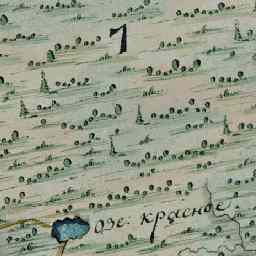 1
Озе: красное